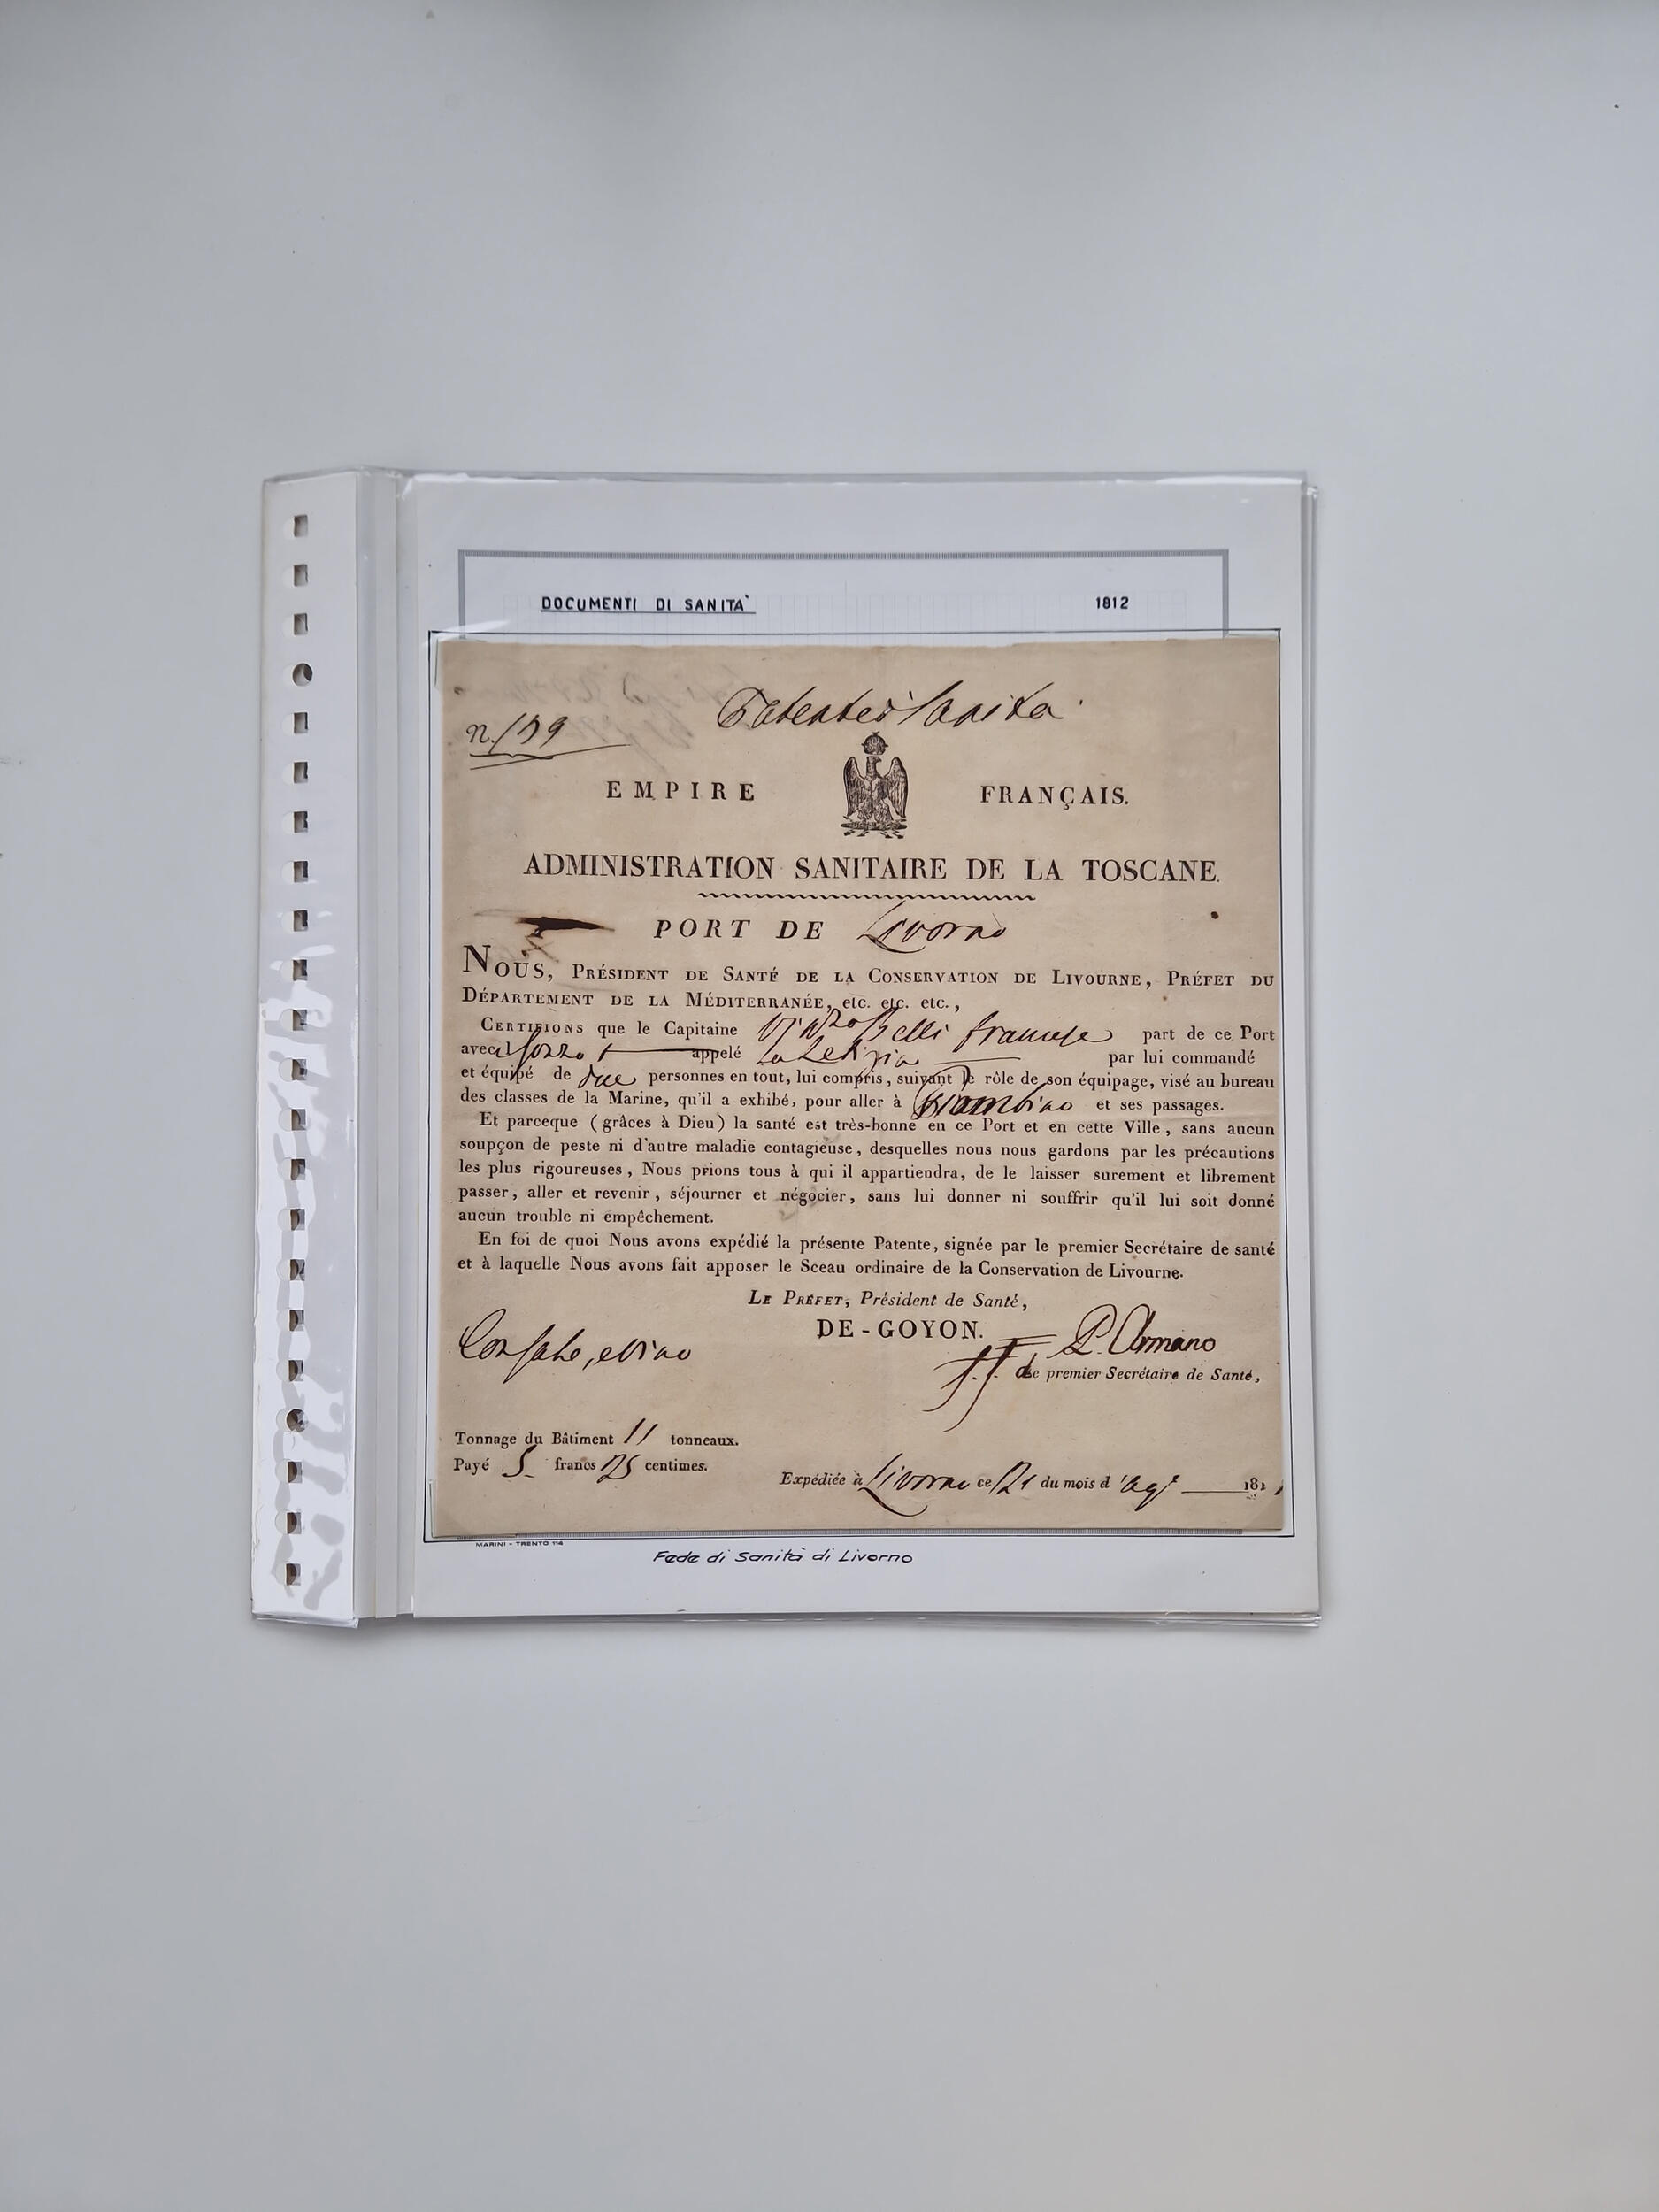 DOCUMENTI DI SANITÀ 1812
Patente di Sanita
n. 179
EMPIRE FRANÇAIS.
ADMINISTRATION SANITAIRE DE LA TOSCANE.
PORT DE Livorno
NOUS, PRÉSIDENT DE SANTÉ DE LA CONSERVATION DE LIVOURNE, PRÉFET DU
DÉPARTEMENT DE LA MÉDITERRANÉE, etc. etc. etc.,
CERTIFIONS que le Capitaine Belli francese part de ce Port
avec il Gozzo appelé La Letizia par lui commandé
et équipé de due personnes en tout, lui compris, suivant le rôle de son équipage, visé au bureau
des classes de la Marine, qu'il a exhibé, pour aller à Piombino et ses passages.
Et parceque (grâces à Dieu) la santé est très-bonne en ce Port et en cette Ville, sans aucun
soupçon de peste ni d'autre maladie contagieuse, desquelles nous nous gardons par les précautions
les plus rigoureuses, Nous prions tous à qui il appartiendra, de le laisser surement et librement
passer, aller et revenir, séjourner et négocier, sans lui donner ni souffrir qu'il lui soit donné
aucun trouble ni empêchement.
En foi de quoi Nous avons expédié la présente Patente, signée par le premier Secrétaire de santé
et à laquelle Nous avons fait apposer le Sceau ordinaire de la Conservation de Livourne.
LE PRÉFET, Président de Santé,
DE-GOYON.
P. Armano
ff. de premier Secrétaire de Santé,
Tonnage du Bâtiment 11 tonneaux.
Payé 5 francs centimes.
Expédiée à Livorno ce 21 du mois d'Ago 181
MARINI - TRENTO 114
Fede di Sanità di Livorno